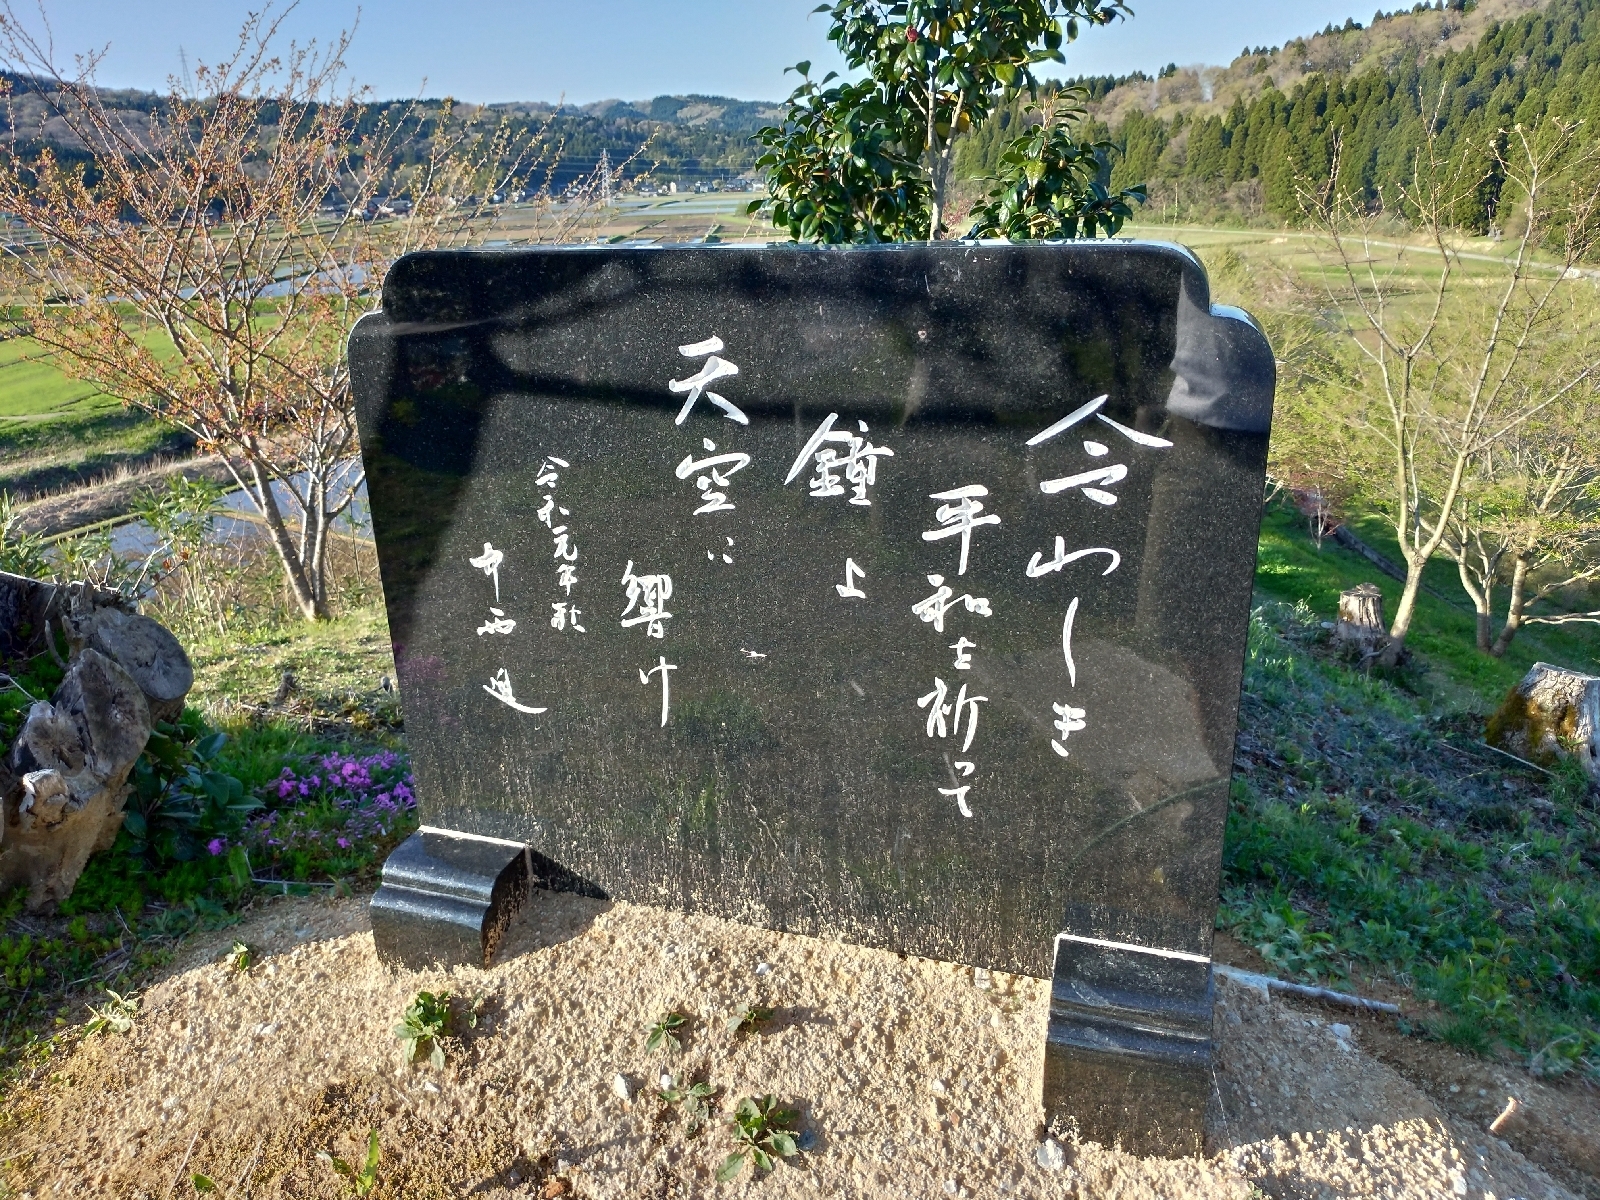 令わしき
平和を祈って
鐘よ
天空に
響け
令和元年秋
中西進